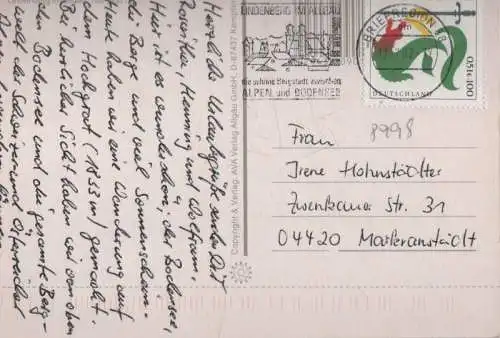 Herzliche Urlaubsgrüße
Henning und Wolfram.
Hier ist es wunderschön, der Bodensee,
die Berge und viel Sonnenschein.
Heute haben wir eine Wanderung auf
dem Hochgrat (1833 m) gemacht.
Bei herrlicher Sicht haben wir von oben
den Bodensee und die gesamte Berg-
welt der Schweizer und Österreicher
Copyright & Verlag: AVA Verlag Allgäu GmbH, D-87437 Kempten
LINDENBERG IM ALLGÄU
die schöne Bergstadt zwischen
ALPEN und BODENSEE
BRIEFREGION 8
DEUTSCHLAND
100
Frau
8998
Irene Hohnstädter
Zwenkauer Str. 31
04420 Markranstädt